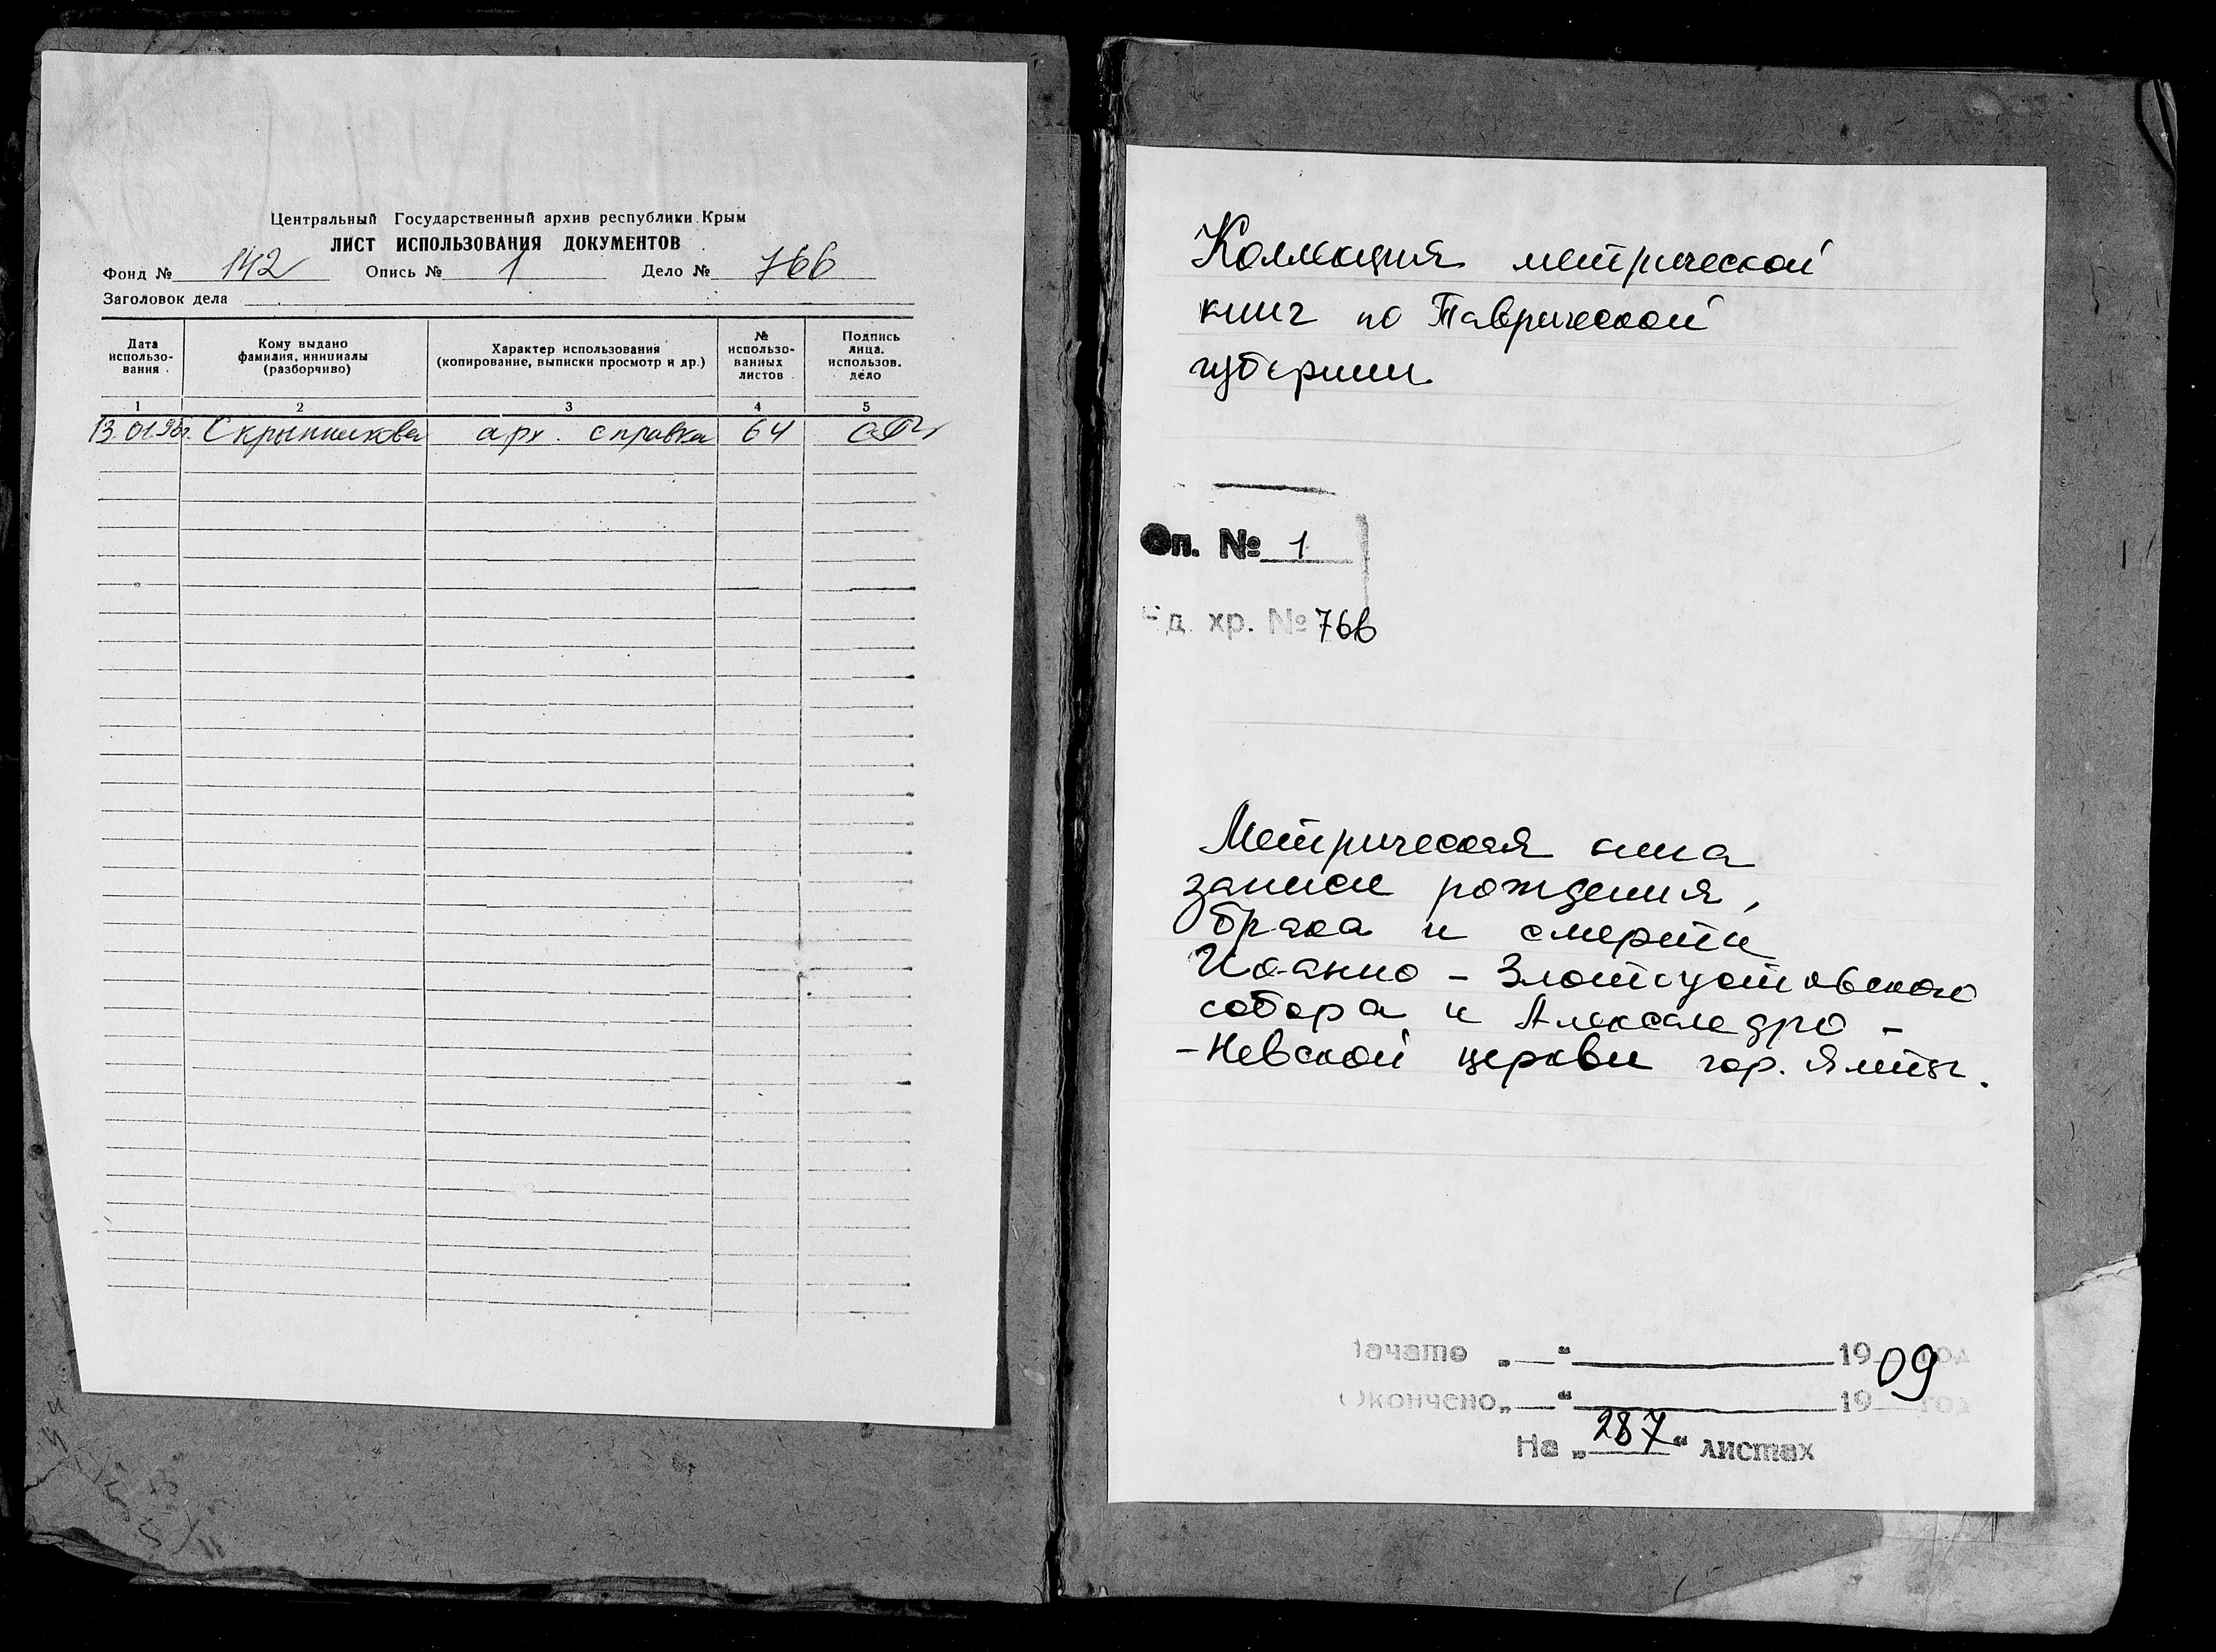 Центральный Государственный архив республики Крым
ЛИСТ ИСПОЛЬЗОВАНИЯ ДОКУМЕНТОВ
Фонд № 142 Опись № 1 Дело № 766
Заголовок дела
Дата использо-вания
Кому выдано фамилия, инициалы (разборчиво)
Характер использования (копирование, выписки просмотр и др.)
№ использо-ванных листов
Подпись лица. использов. дело
1 2 3 4 5
13.01.96г. Скрынникова арх. справка 64
Коллекция метрической
книг по Таврической
губернии.
Оп. № 1
Ед. хр. № 766
Метрическая книга
записи рождения,
брака и смерти
Иоанно - Златоустовского
собора и Александро -
- Невской церкви гор. Ялты.
Начато „ “ 1909 год
Окончено „ “ 19 год
На „ 287 “ листах